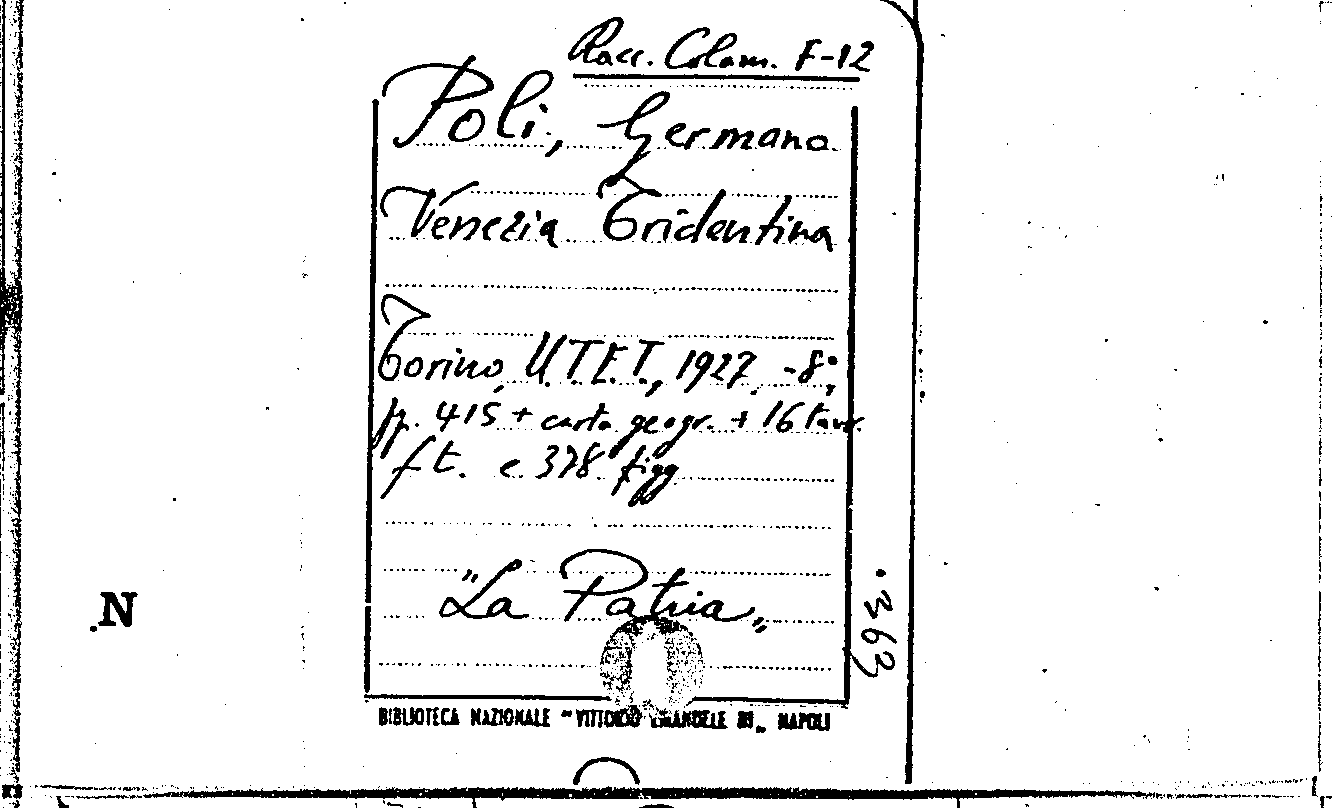 Racc. Colom. F-12
Poli, Germano
Venezia Tridentina
Torino, U.T.E.T., 1927. -8°;
pp. 415 + carta geogr. + 16 tavv.
f t. e 378 figg
"La Patria"
.363
N
BIBLIOTECA NAZIONALE "VITTORIO EMANUELE III" NAPOLI